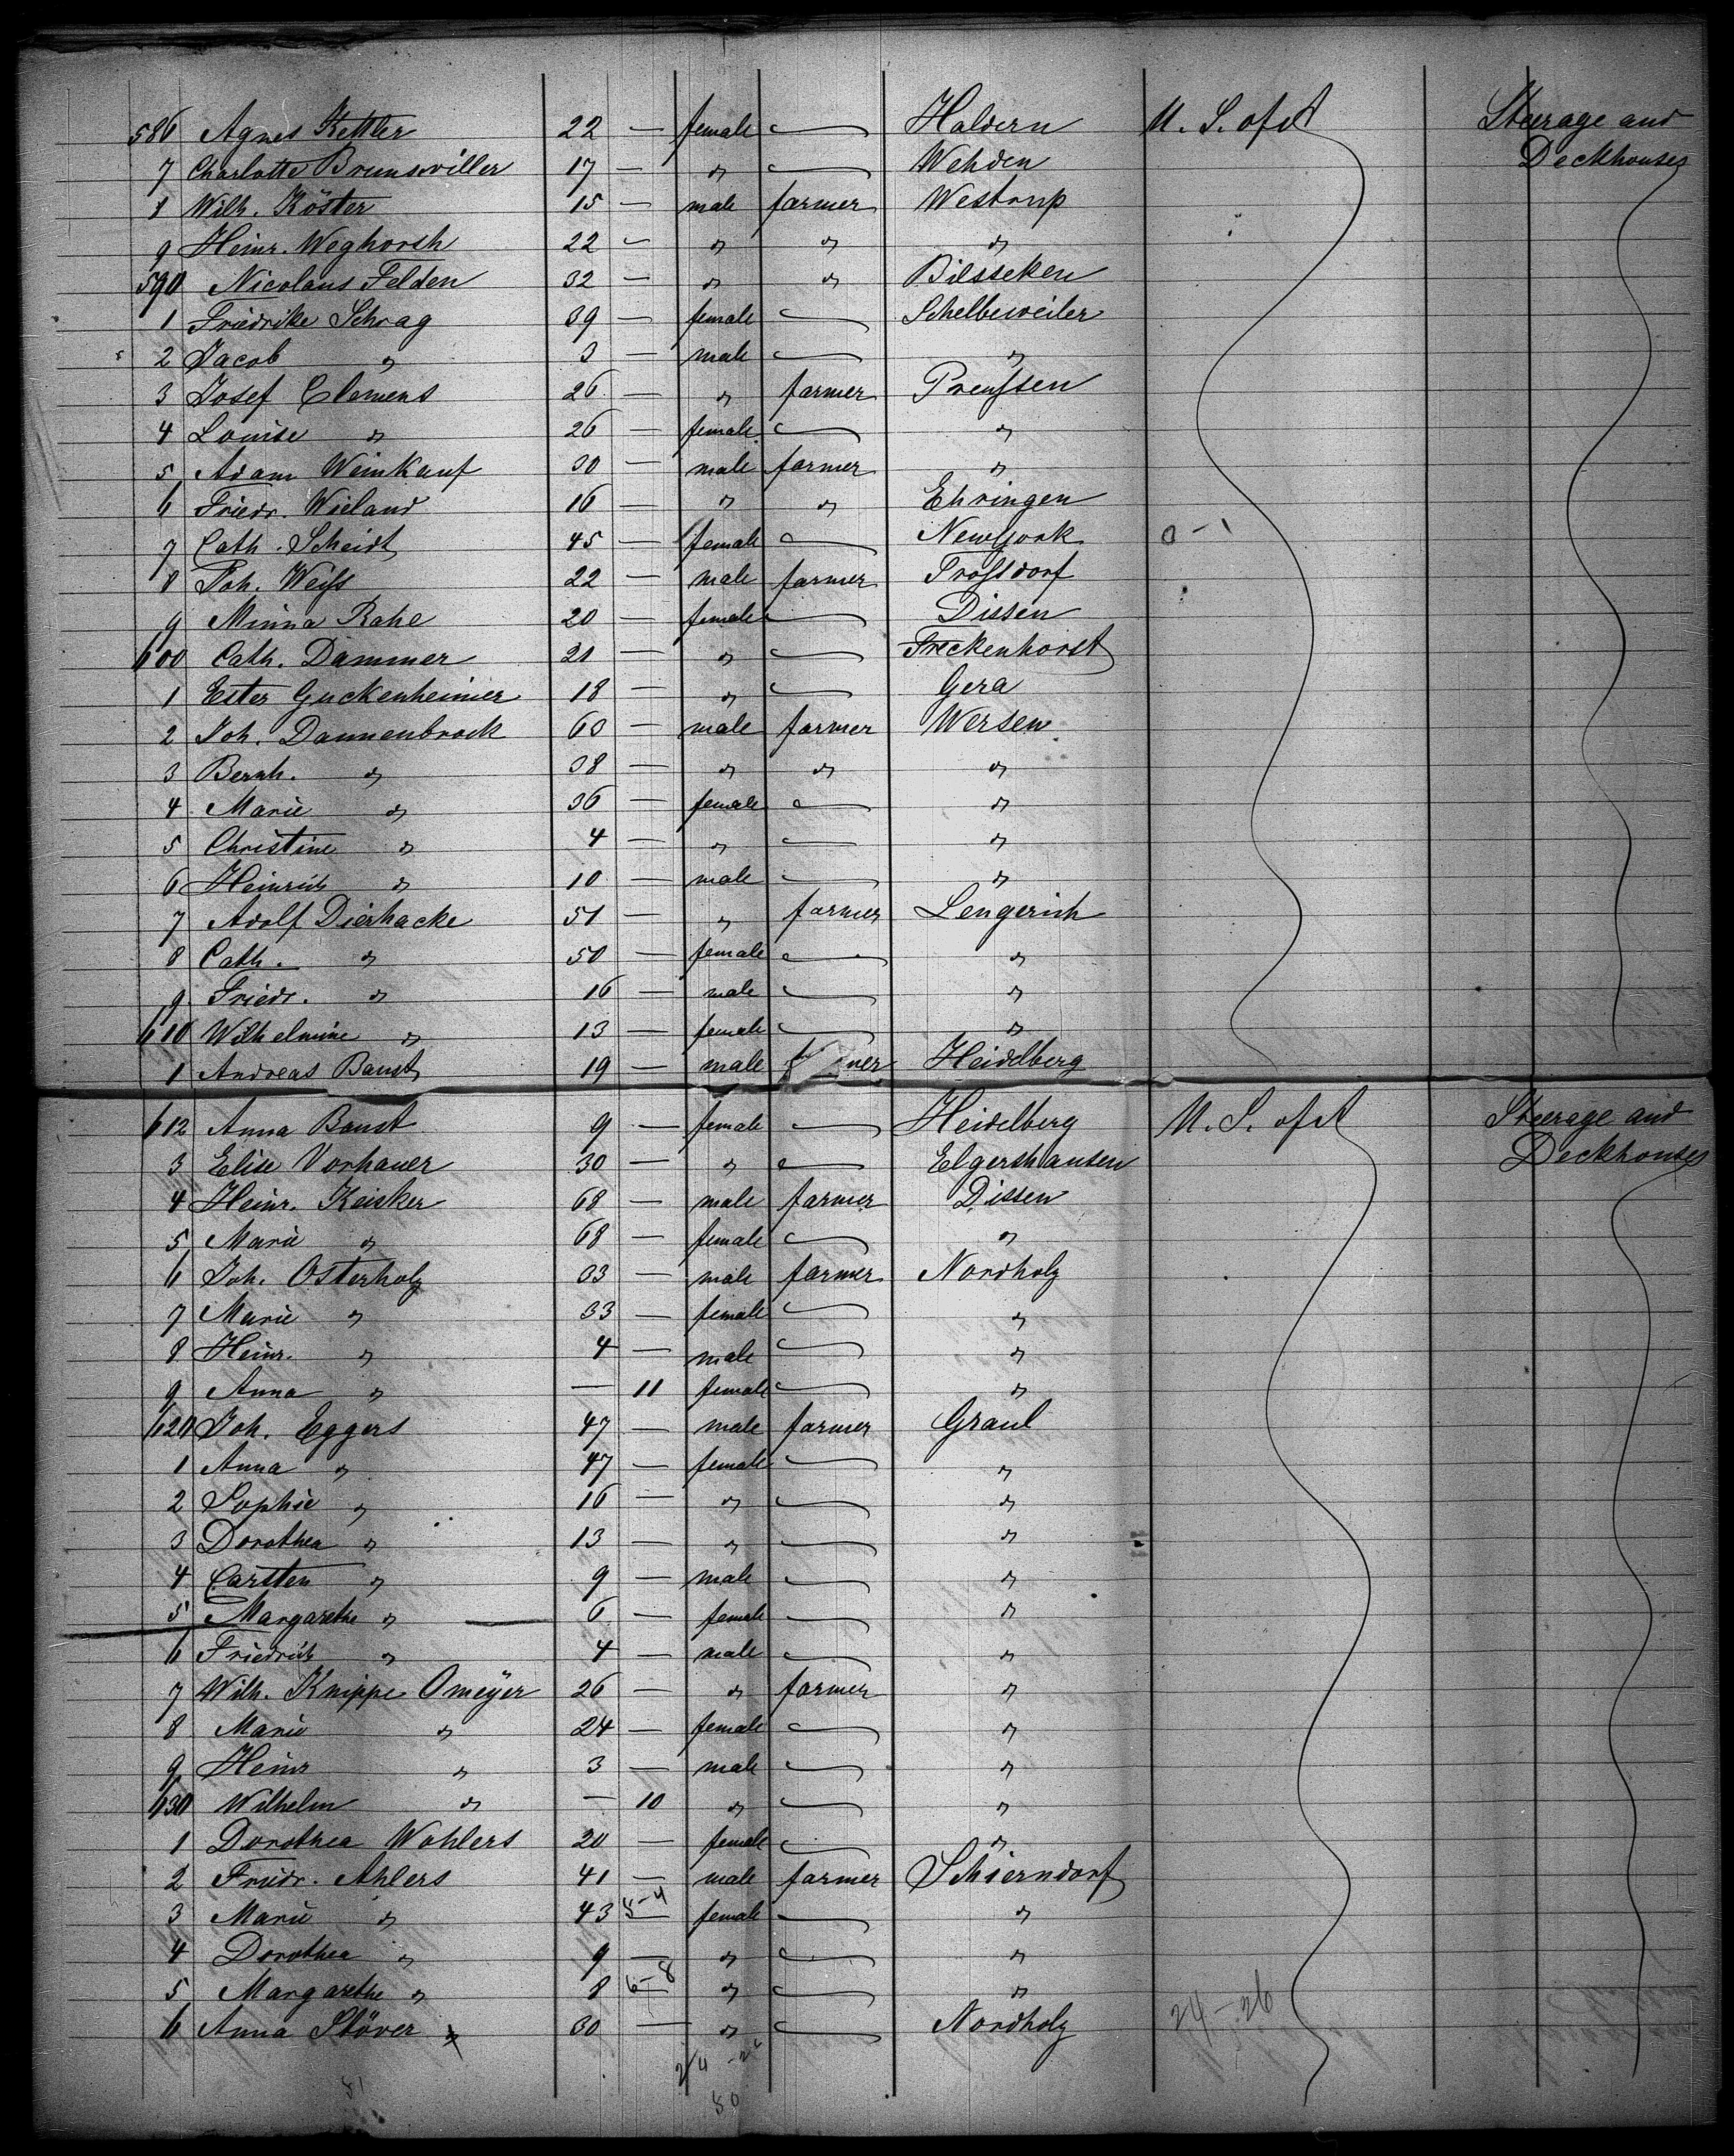 586 Agnes Kettler 22 — female — Haldern U. S. of A Steerage and
7 Charlotte Brunswiller 17 — " — Wehden Deckhouses
8 Wilh. Köster 15 — male farmer Westrup
9 Heinr. Weghorsh 22 — " " "
590 Nicolaus Felden 32 — " " Bilsseken
1 Friedrike Schrag 39 — female — Schelbeweiler
2 Jacob " 3 — male — "
3 Josef Clemens 26 — " farmer Preussen
4 Louise " 26 — female — "
5 Adam Weinkauf 30 — male farmer "
6 Friedr. Wieland 16 — " " Ehringen
7 Cath. Scheidt 45 — female — New York 0 - 1
8 Joh. Weiss 22 — male farmer Trossdorf
9 Minna Rahe 20 — female — Dissen
600 Cath. Dammer 21 — " — Freckenhorst
1 Ester Guckenheimer 18 — " — Gera
2 Joh. Dannenbrock 63 — male farmer Wersen
3 Bernh. " 38 — " " "
4 Marie " 36 — female — "
5 Christine " 4 — " — "
6 Heinrich " 10 — male — "
7 Adolf Dierhacke 51 — " farmer Lengerich
8 Cath. " 50 — female — "
9 Friedr. " 16 — male — "
610 Wilhelmine " 13 — female — "
1 Andreas Banst 19 — male farmer Heidelberg
612 Anna Banst 9 — female — Heidelberg U. S. of A Steerage and
3 Elise Vorhauer 30 — " — Elgershausen Deckhouses
4 Heinr. Keisker 68 — male farmer Dissen
5 Marie " 68 — female — "
6 Joh. Osterholz 33 — male farmer Nordholz
7 Marie " 33 — female — "
8 Heinr. " 4 — male — "
9 Anna " — 11 female — "
620 Joh. Eggers 47 — male farmer Graul
1 Anna " 47 — female — "
2 Sophie " 16 — " — "
3 Dorothea " 13 — " — "
4 Carsten " 9 — male — "
5 Margarethe " 6 — female — "
6 Friedrich " 4 — male — "
7 Wilh. Knippe Omeyer 26 — " farmer "
8 Marie " 24 — female — "
9 Heinr " 3 — male — "
630 Wilhelm " — 10 " — "
1 Dorothea Wohlers 20 — female — "
2 Friedr. Ahlers 41 — male farmer Schierndorf
3 Marie " 43 5-4 female — "
4 Dorothea " 9 — " — "
5 Margarethe " 8 6-8 " — "
6 Anna Stöver 30 — " — Nordholz 24-26
81 80